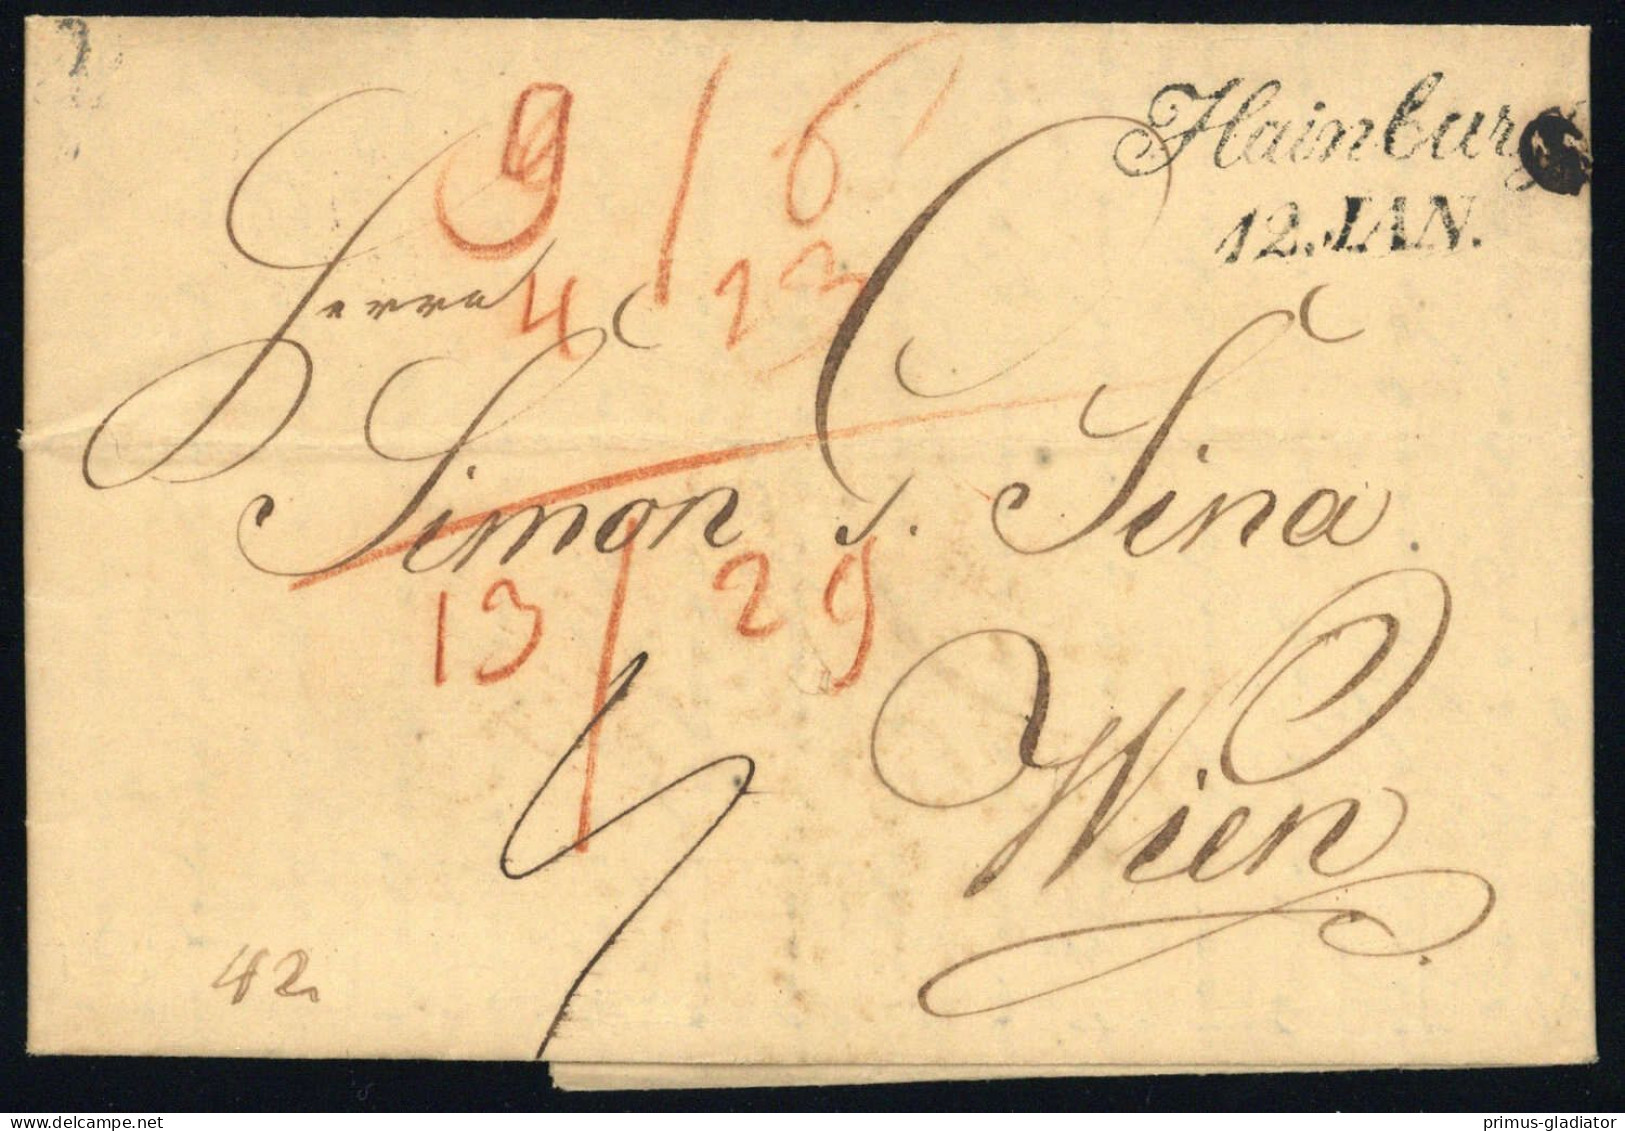 Hainburg
12. JAN.
9 / 6
4 23
13 / 29
Herrn
Simon v. Sina
Wien
42
primus-gladiator